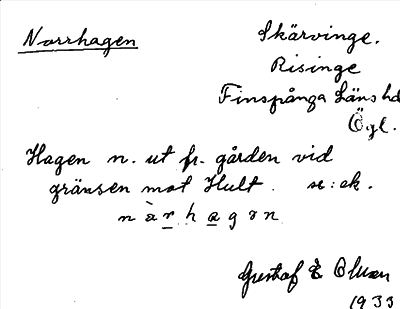 Norrhagen
Skärvinge.
Risinge
Finspånga Läns hd
Ögl.
Hagen n. ut fr. gården vid
gränsen mot Hult. se: ek.
nàrhagən
Gustaf E Olsson
1933